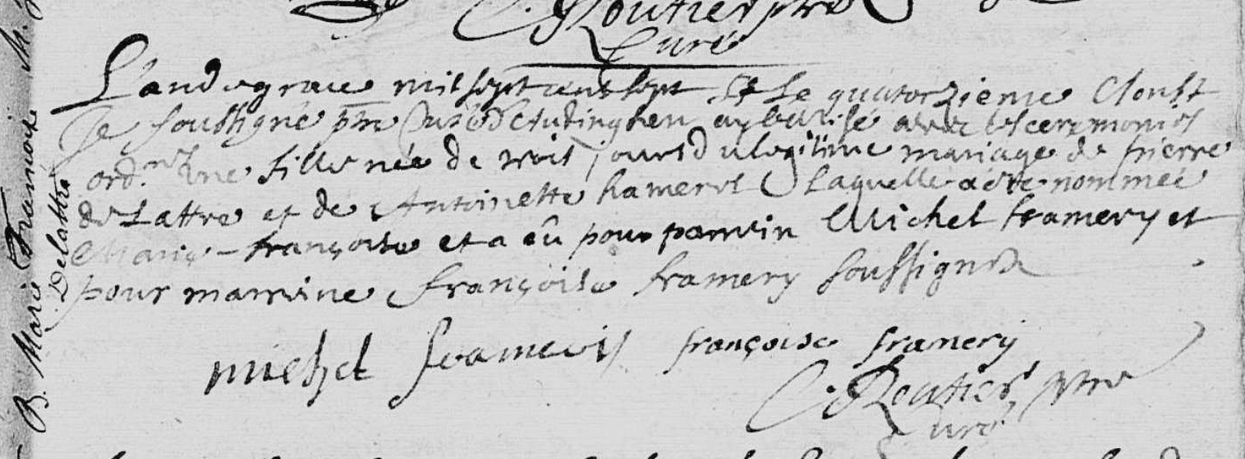 C. Routier ptre
Curé
L'an de grace mil sept cent sept et le quatorzieme d'oust
Je soussigné ptre Curé d'Etudinghen ay batisé avec les ceremonies
ord.res une fille née de trois jours du legitime mariage de pierre
de Lattre et de Antoinette hamerel Laquelle a été nommée
Marie-françoise et a eû pour parrein Michel framery et
pour marreine françoise framery soussignez
michel framery françoise framery
C. Routier ptre
Curé
B. Marie Françoise
Delattre